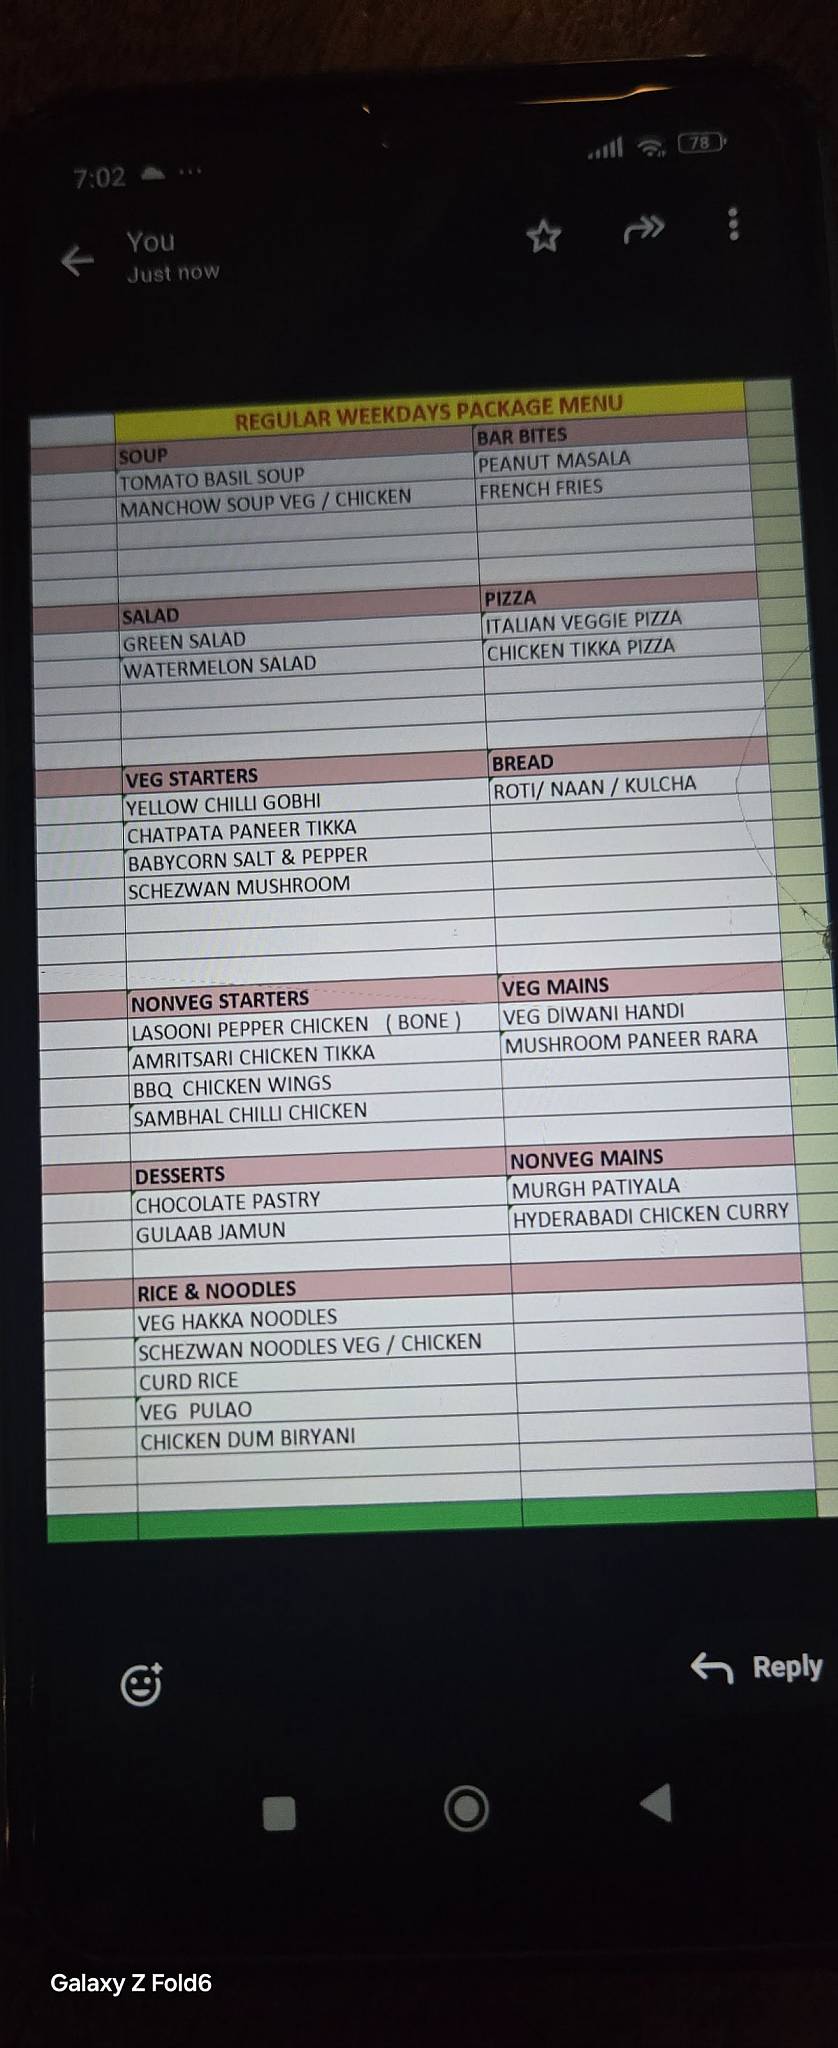 7:02 ...
78
You
Just now
REGULAR WEEKDAYS PACKAGE MENU
SOUP
TOMATO BASIL SOUP
MANCHOW SOUP VEG / CHICKEN
BAR BITES
PEANUT MASALA
FRENCH FRIES
SALAD
GREEN SALAD
WATERMELON SALAD
PIZZA
ITALIAN VEGGIE PIZZA
CHICKEN TIKKA PIZZA
VEG STARTERS
YELLOW CHILLI GOBHI
CHATPATA PANEER TIKKA
BABYCORN SALT & PEPPER
SCHEZWAN MUSHROOM
BREAD
ROTI/ NAAN / KULCHA
NONVEG STARTERS
LASOONI PEPPER CHICKEN ( BONE )
AMRITSARI CHICKEN TIKKA
BBQ CHICKEN WINGS
SAMBHAL CHILLI CHICKEN
VEG MAINS
VEG DIWANI HANDI
MUSHROOM PANEER RARA
DESSERTS
CHOCOLATE PASTRY
GULAAB JAMUN
NONVEG MAINS
MURGH PATIYALA
HYDERABADI CHICKEN CURRY
RICE & NOODLES
VEG HAKKA NOODLES
SCHEZWAN NOODLES VEG / CHICKEN
CURD RICE
VEG PULAO
CHICKEN DUM BIRYANI
Reply
Galaxy Z Fold6